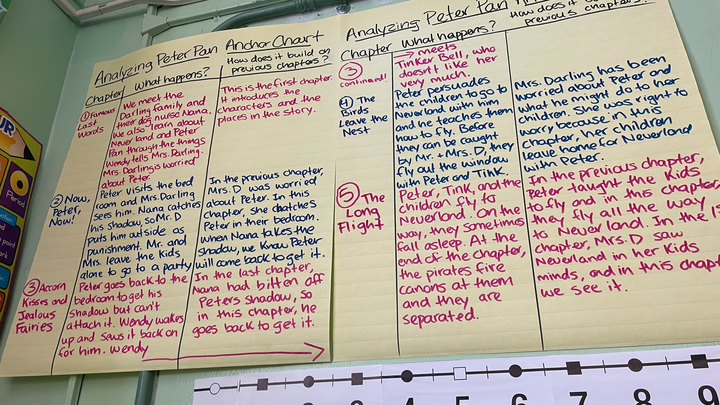 Analyzing Peter Pan Anchor Chart
Chapter
What happens?
How does it build on
previous chapters?
① Famous
Last
Words
We meet the
Darling family and
their dog nurse Nana.
We also learn about
Neverland and Peter
Pan through the things
Wendy tells Mrs. Darling.
Mrs. Darling is worried
about Peter.
This is the first chapter.
It introduces the
characters and the
places in the story.
② Now,
Peter,
Now!
Peter visits the bed
room and Mrs. Darling
sees him. Nana catches
his shadow, so Mr. D
puts him outside as
punishment. Mr. and
Mrs. leave the kids
alone to go to a party
In the previous chapter,
Mrs. D was worried
about Peter. In this
chapter, she catches
Peter in their bedroom.
When Nana takes the
shadow, we know Peter
will come back to get it.
③ Acorn
Kisses and
Jealous
Fairies
Peter goes back to the
bedroom to get his
shadow but can't
attach it. Wendy wakes
up and saws it back on
for him. Wendy
In the last chapter,
Nana had bitten off
Peters shadow, so
in this chapter, he
goes back to get it.
Analyzing Peter Pan
Chapter
What happens?
How does it
previous chapters?
③
continued!
→ meets
Tinker Bell, who
doesn't like her
very much.
④ The
Birds
Leave the
Nest
Peter persuades
the children to go to
Neverland with him
and he teaches them
how to fly. Before
they can be caught
by Mr. + Mrs. D, they
fly out the window
with Peter and Tink.
Mrs. Darling has been
worried about Peter and
what he might do to her
children. She was right to
worry because in this
chapter, her children
leave home for Neverland
with Peter.
⑤ The
Long
Flight
Peter, Tink, and the
children fly to
Neverland. On the
way, they sometimes
fall asleep. At the
end of the chapter,
the pirates fire
canons at them
and they are
separated.
In the previous chapter,
Peter taught the kids
to fly and in this chapter
they fly all the way
to Neverland. In the 1s
chapter, Mrs. D saw
Neverland in her kids
minds, and in this chapt
we see it.
UR
Period
0 1 2 3 4 5 6 7 8 9